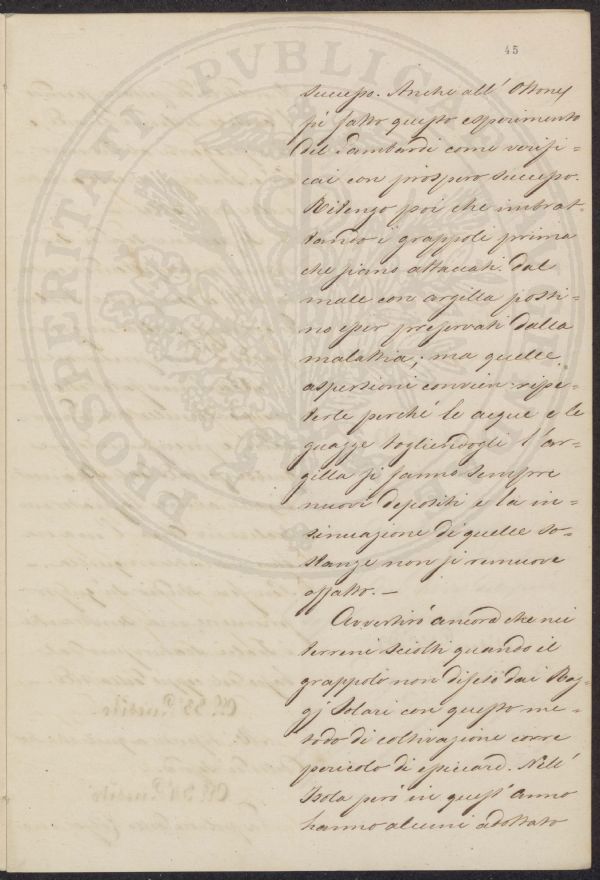 45
successo. Anche all' Ottone
fù fatto questo esperimento
del Lambardi come verifi-
cai con prospero successo.
Ritengo poi che imbrat-
tando i grappoli prima
che siano attaccati dal
male con argilla possi-
no esser preservati dalla
malattia; ma quelle
aspersioni convien ripe-
terle perché le acque e le
guazze togliendogli l'ar-
gilla si fanno sempre
nuovi depositi e la in-
sinuazione di quelle so-
stanze non si rimuove
affatto. —
Avvertirò ancora che nei
terreni sciolti quando il
grappolo non difeso dai Rag-
gj Solari con questo me-
todo di coltivazione corre
pericolo di
Nell'
Isola però in quest'anno
hanno alcuni adottato
PROSPERITATI PVBLICAE